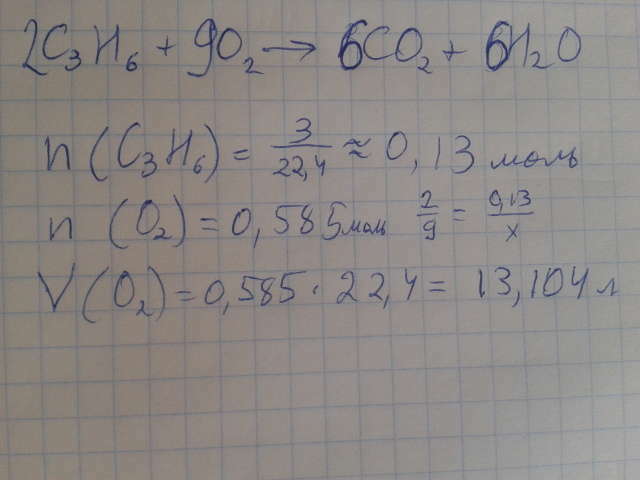 2C₃H₆ + 9O₂ → 6CO₂ + 6H₂O
n (C₃H₆) = 3/22,4 ≈ 0,13 моль
n (O₂) = 0,585 моль 2/9 = 0,13/x
V (O₂) = 0,585 · 22,4 = 13,104 л